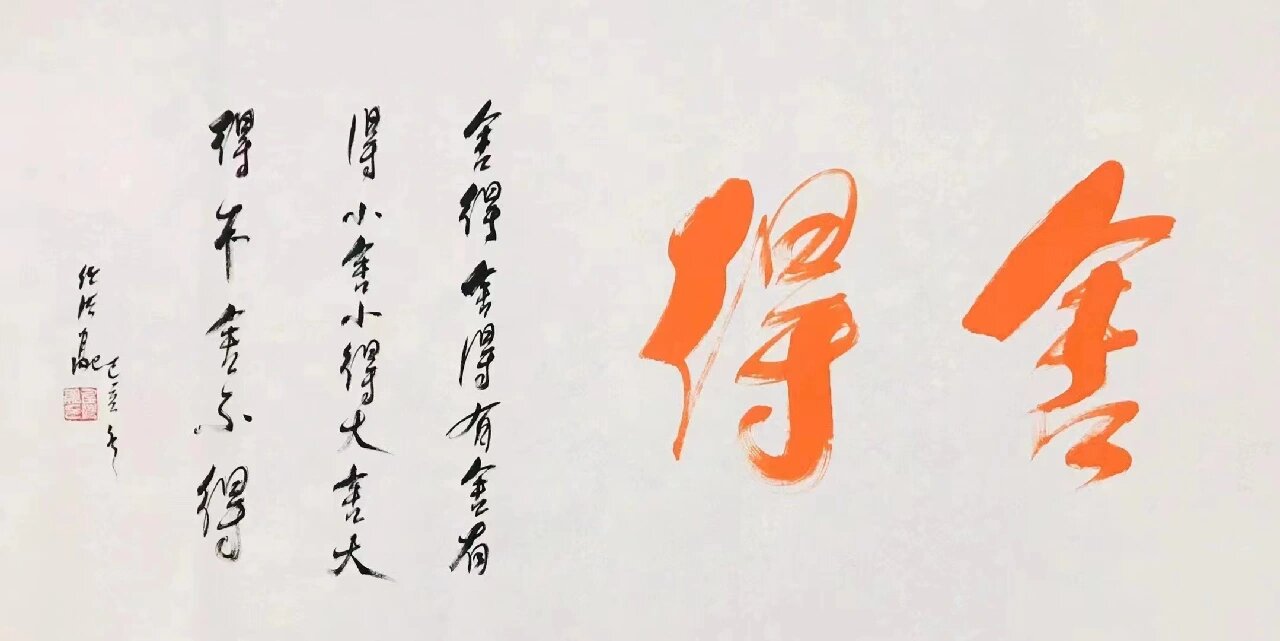 舍得
舍得舍得有舍有
得小舍小得大舍大
得不舍不得
己亥冬
任法融